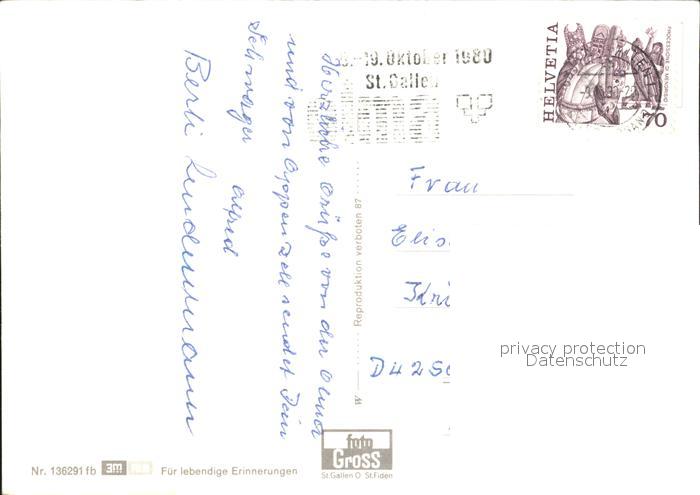 9.-19. Oktober 1980
St. Gallen
HELVETIA
PROCESSIONE O MENDRISIO
70
Herzliche Grüße von der Olmer
und von Appenzell sendet Dein
Schwager Alfred
Berli Lendenmann
Frau
Elis
Kri
D 42 5
W — Reproduktion verboten 87
privacy protection
Datenschutz
Nr. 136291 fb 3m Für lebendige Erinnerungen
foto
Gross
St. Gallen O St. Fiden